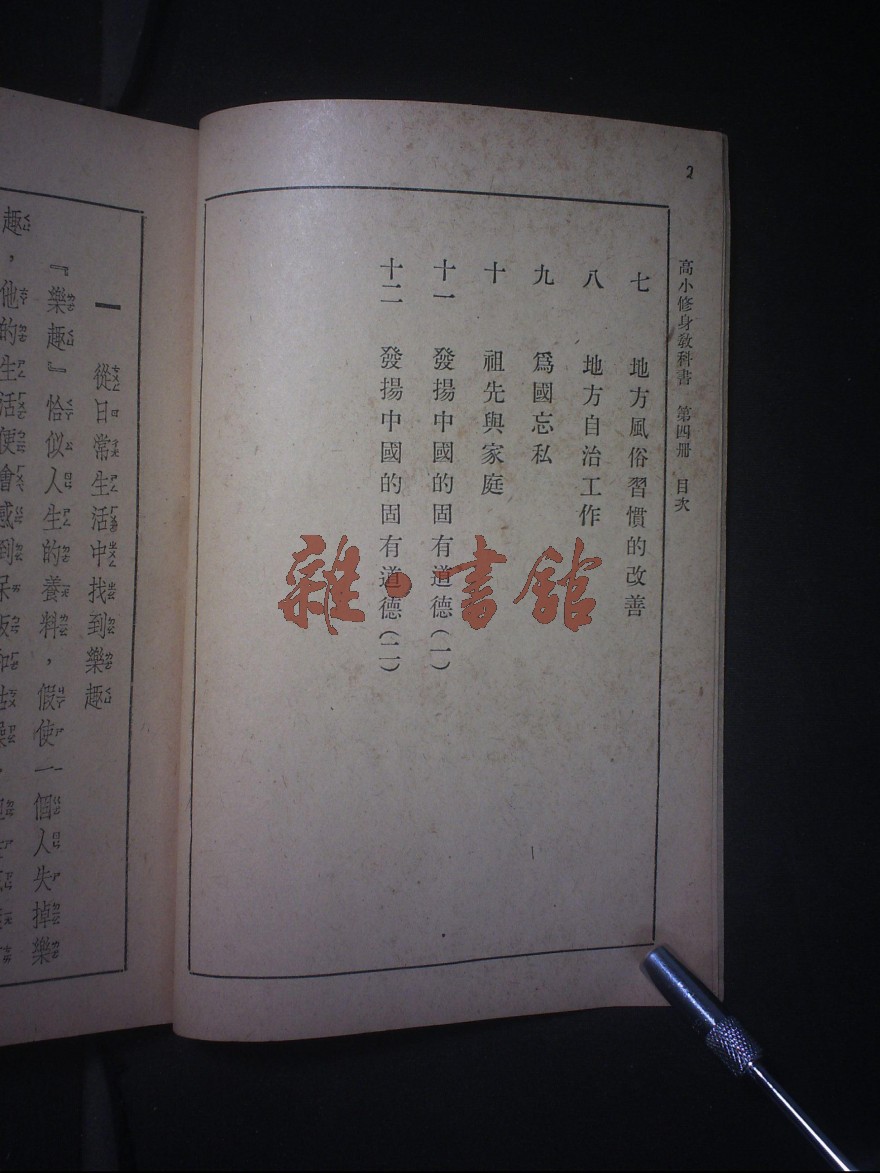 2
高小修身教科書 第四册 目次
七 地方風俗習慣的改善
八 地方自治工作
九 爲國忘私
十 祖先與家庭
十一 發揚中國的固有道德(一)
十二 發揚中國的固有道德(二)
雜·書舘
一 從日常生活中找到樂趣
『樂趣』恰似人生的養料，假使一個人失掉樂
趣，他的生活便會感到呆板和枯燥，